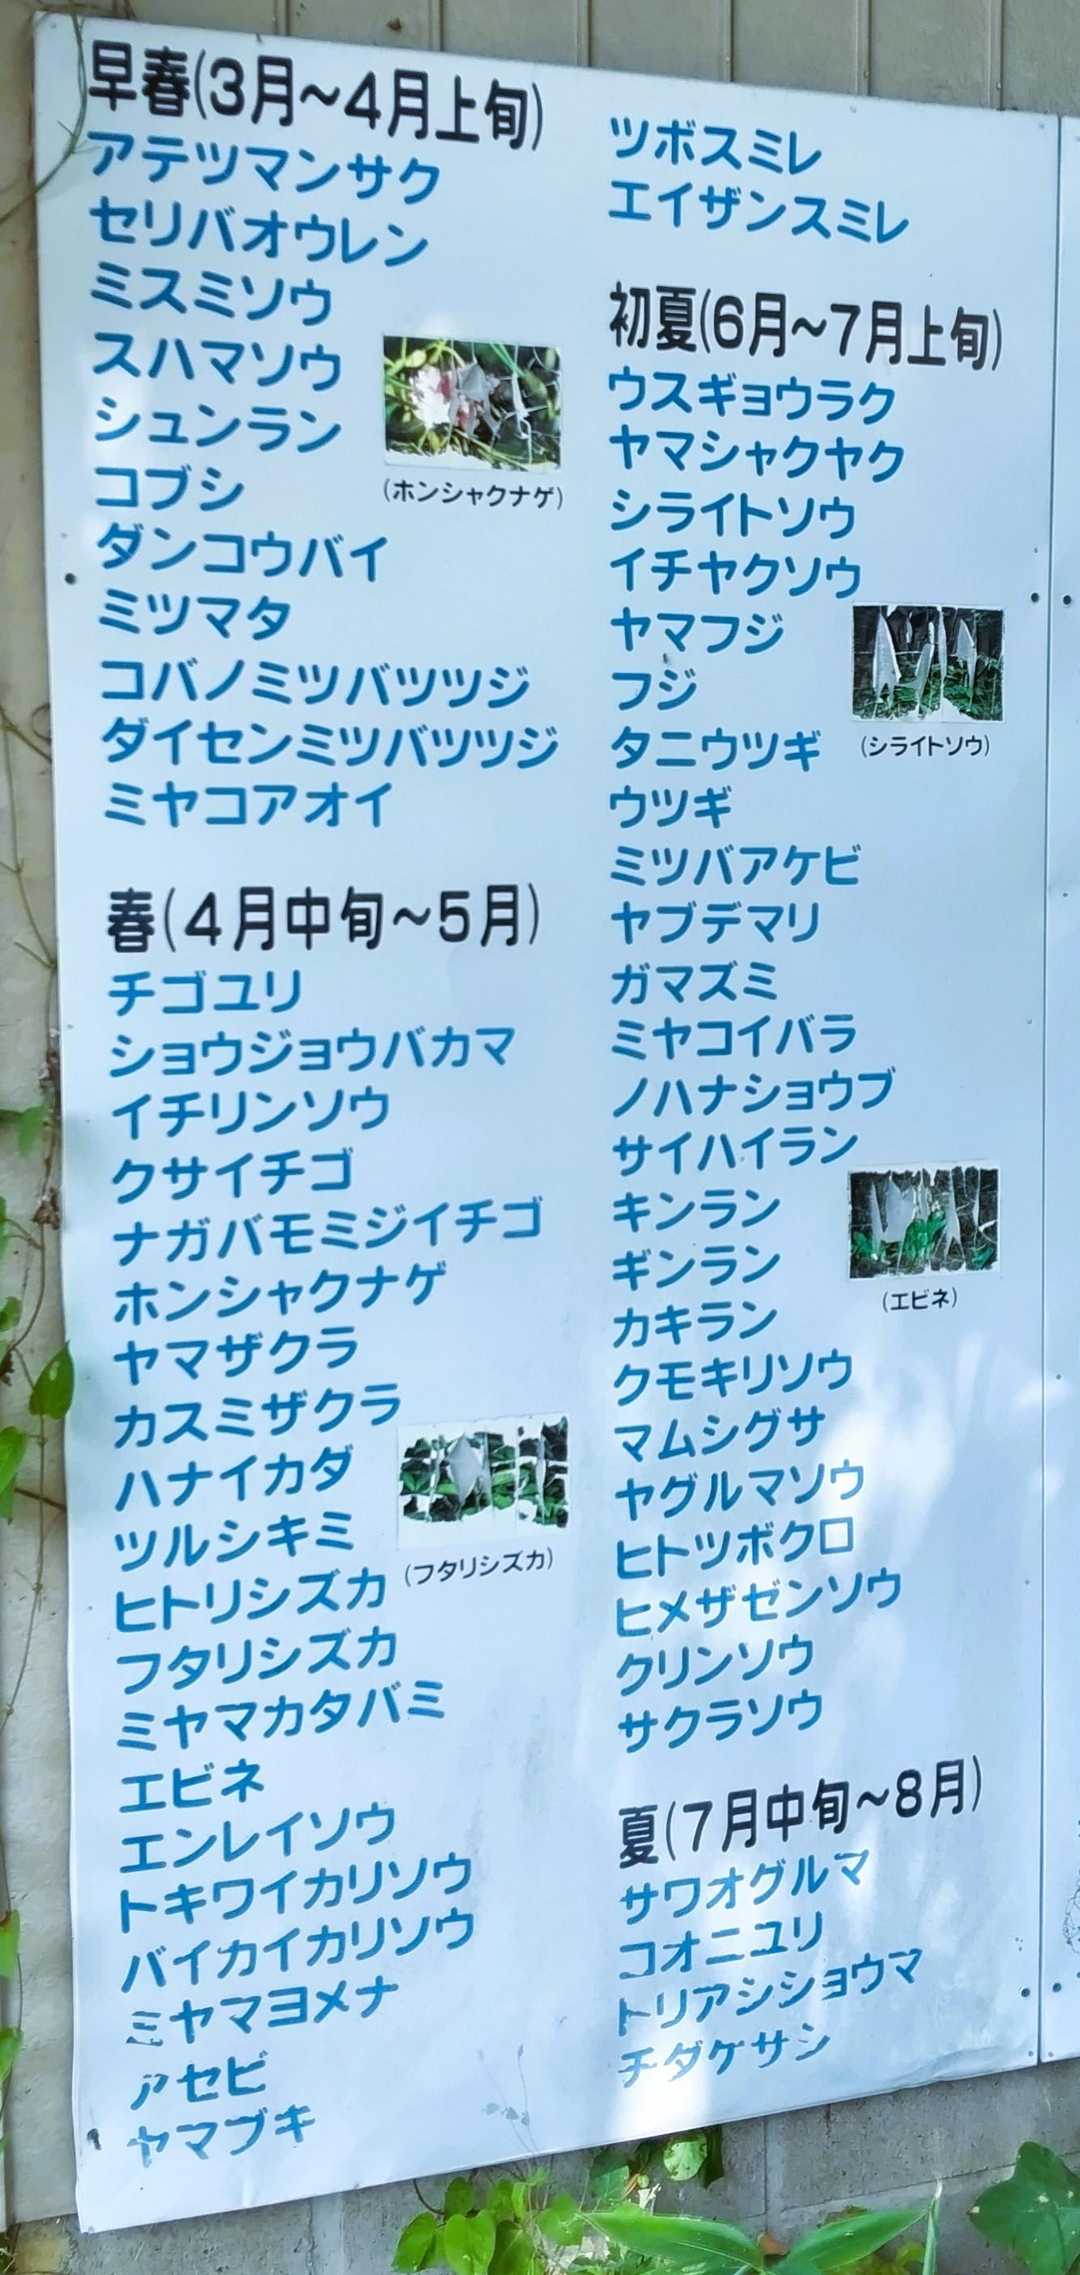 早春(3月～4月上旬)
アテツマンサク
セリバオウレン
ミスミソウ
スハマソウ
シュンラン
コブシ
ダンコウバイ
ミツマタ
コバノミツバツツジ
ダイセンミツバツツジ
ミヤコアオイ
(ホンシャクナゲ)
春(4月中旬～5月)
チゴユリ
ショウジョウバカマ
イチリンソウ
クサイチゴ
ナガバモミジイチゴ
ホンシャクナゲ
ヤマザクラ
カスミザクラ
ハナイカダ
ツルシキミ
ヒトリシズカ
フタリシズカ
ミヤマカタバミ
エビネ
エンレイソウ
トキワイカリソウ
バイカイカリソウ
ミヤマヨメナ
アセビ
ヤマブキ
(フタリシズカ)
ツボスミレ
エイザンスミレ
初夏(6月～7月上旬)
ウスギョウラク
ヤマシャクヤク
シライトソウ
イチヤクソウ
ヤマフジ
フジ
タニウツギ
ウツギ
ミツバアケビ
ヤブデマリ
ガマズミ
ミヤコイバラ
ノハナショウブ
サイハイラン
キンラン
ギンラン
カキラン
クモキリソウ
マムシグサ
ヤグルマソウ
ヒトツボクロ
ヒメザゼンソウ
クリンソウ
サクラソウ
(シライトソウ)
(エビネ)
夏(7月中旬～8月)
サワオグルマ
コオニユリ
トリアシショウマ
チダケサシ